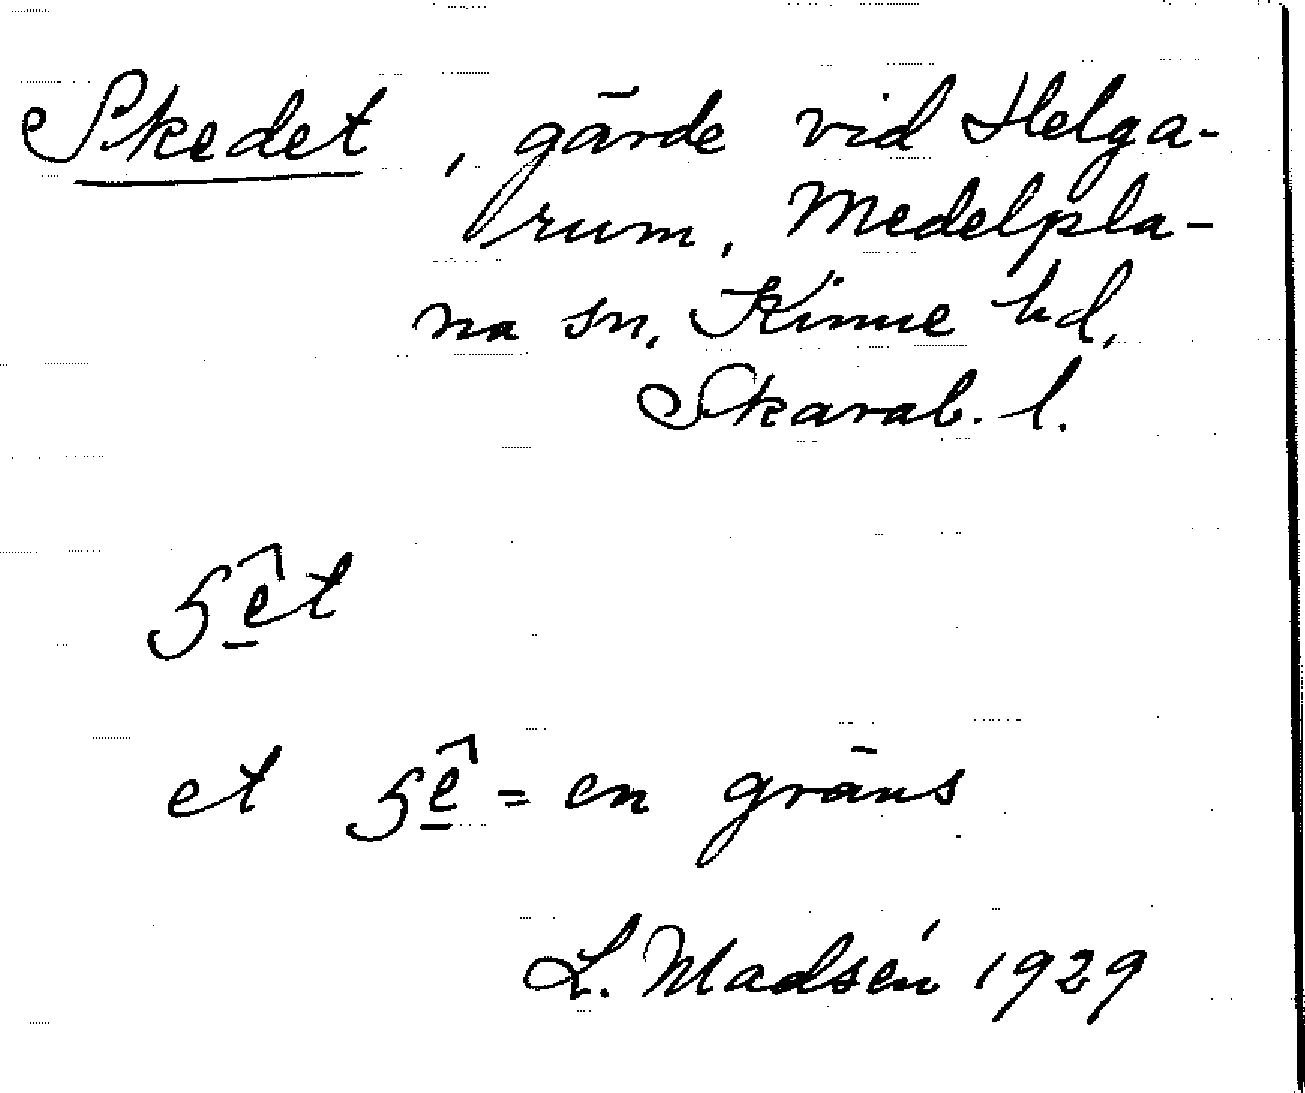 Skedet, gärde vid Helga-
rum, Medelpla-
na sn, Kinne hd,
Skarab. l.
ʃê̠t
et ʃê̠ = en gräns
L. Madsén 1929